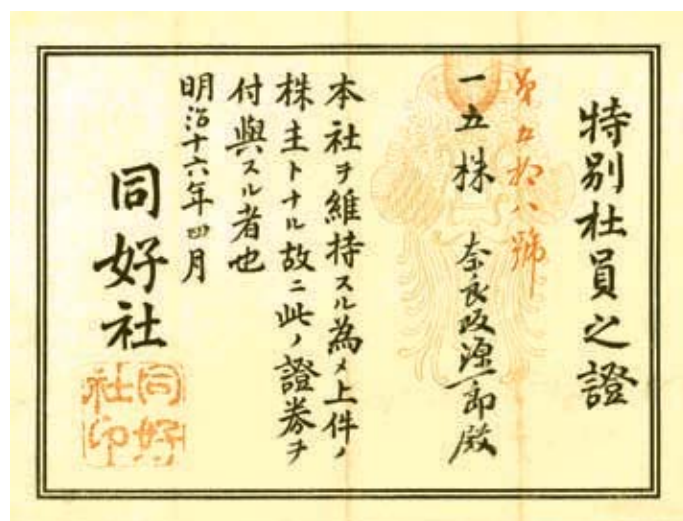 特別社員之證
第五拾八號
一五株 奈良坂源一郎殿
本社ヲ維持スル為メ上件ノ
株主トナル故ニ此ノ證券ヲ
付與スル者也
明治十六年四月
同好社
同好
社印